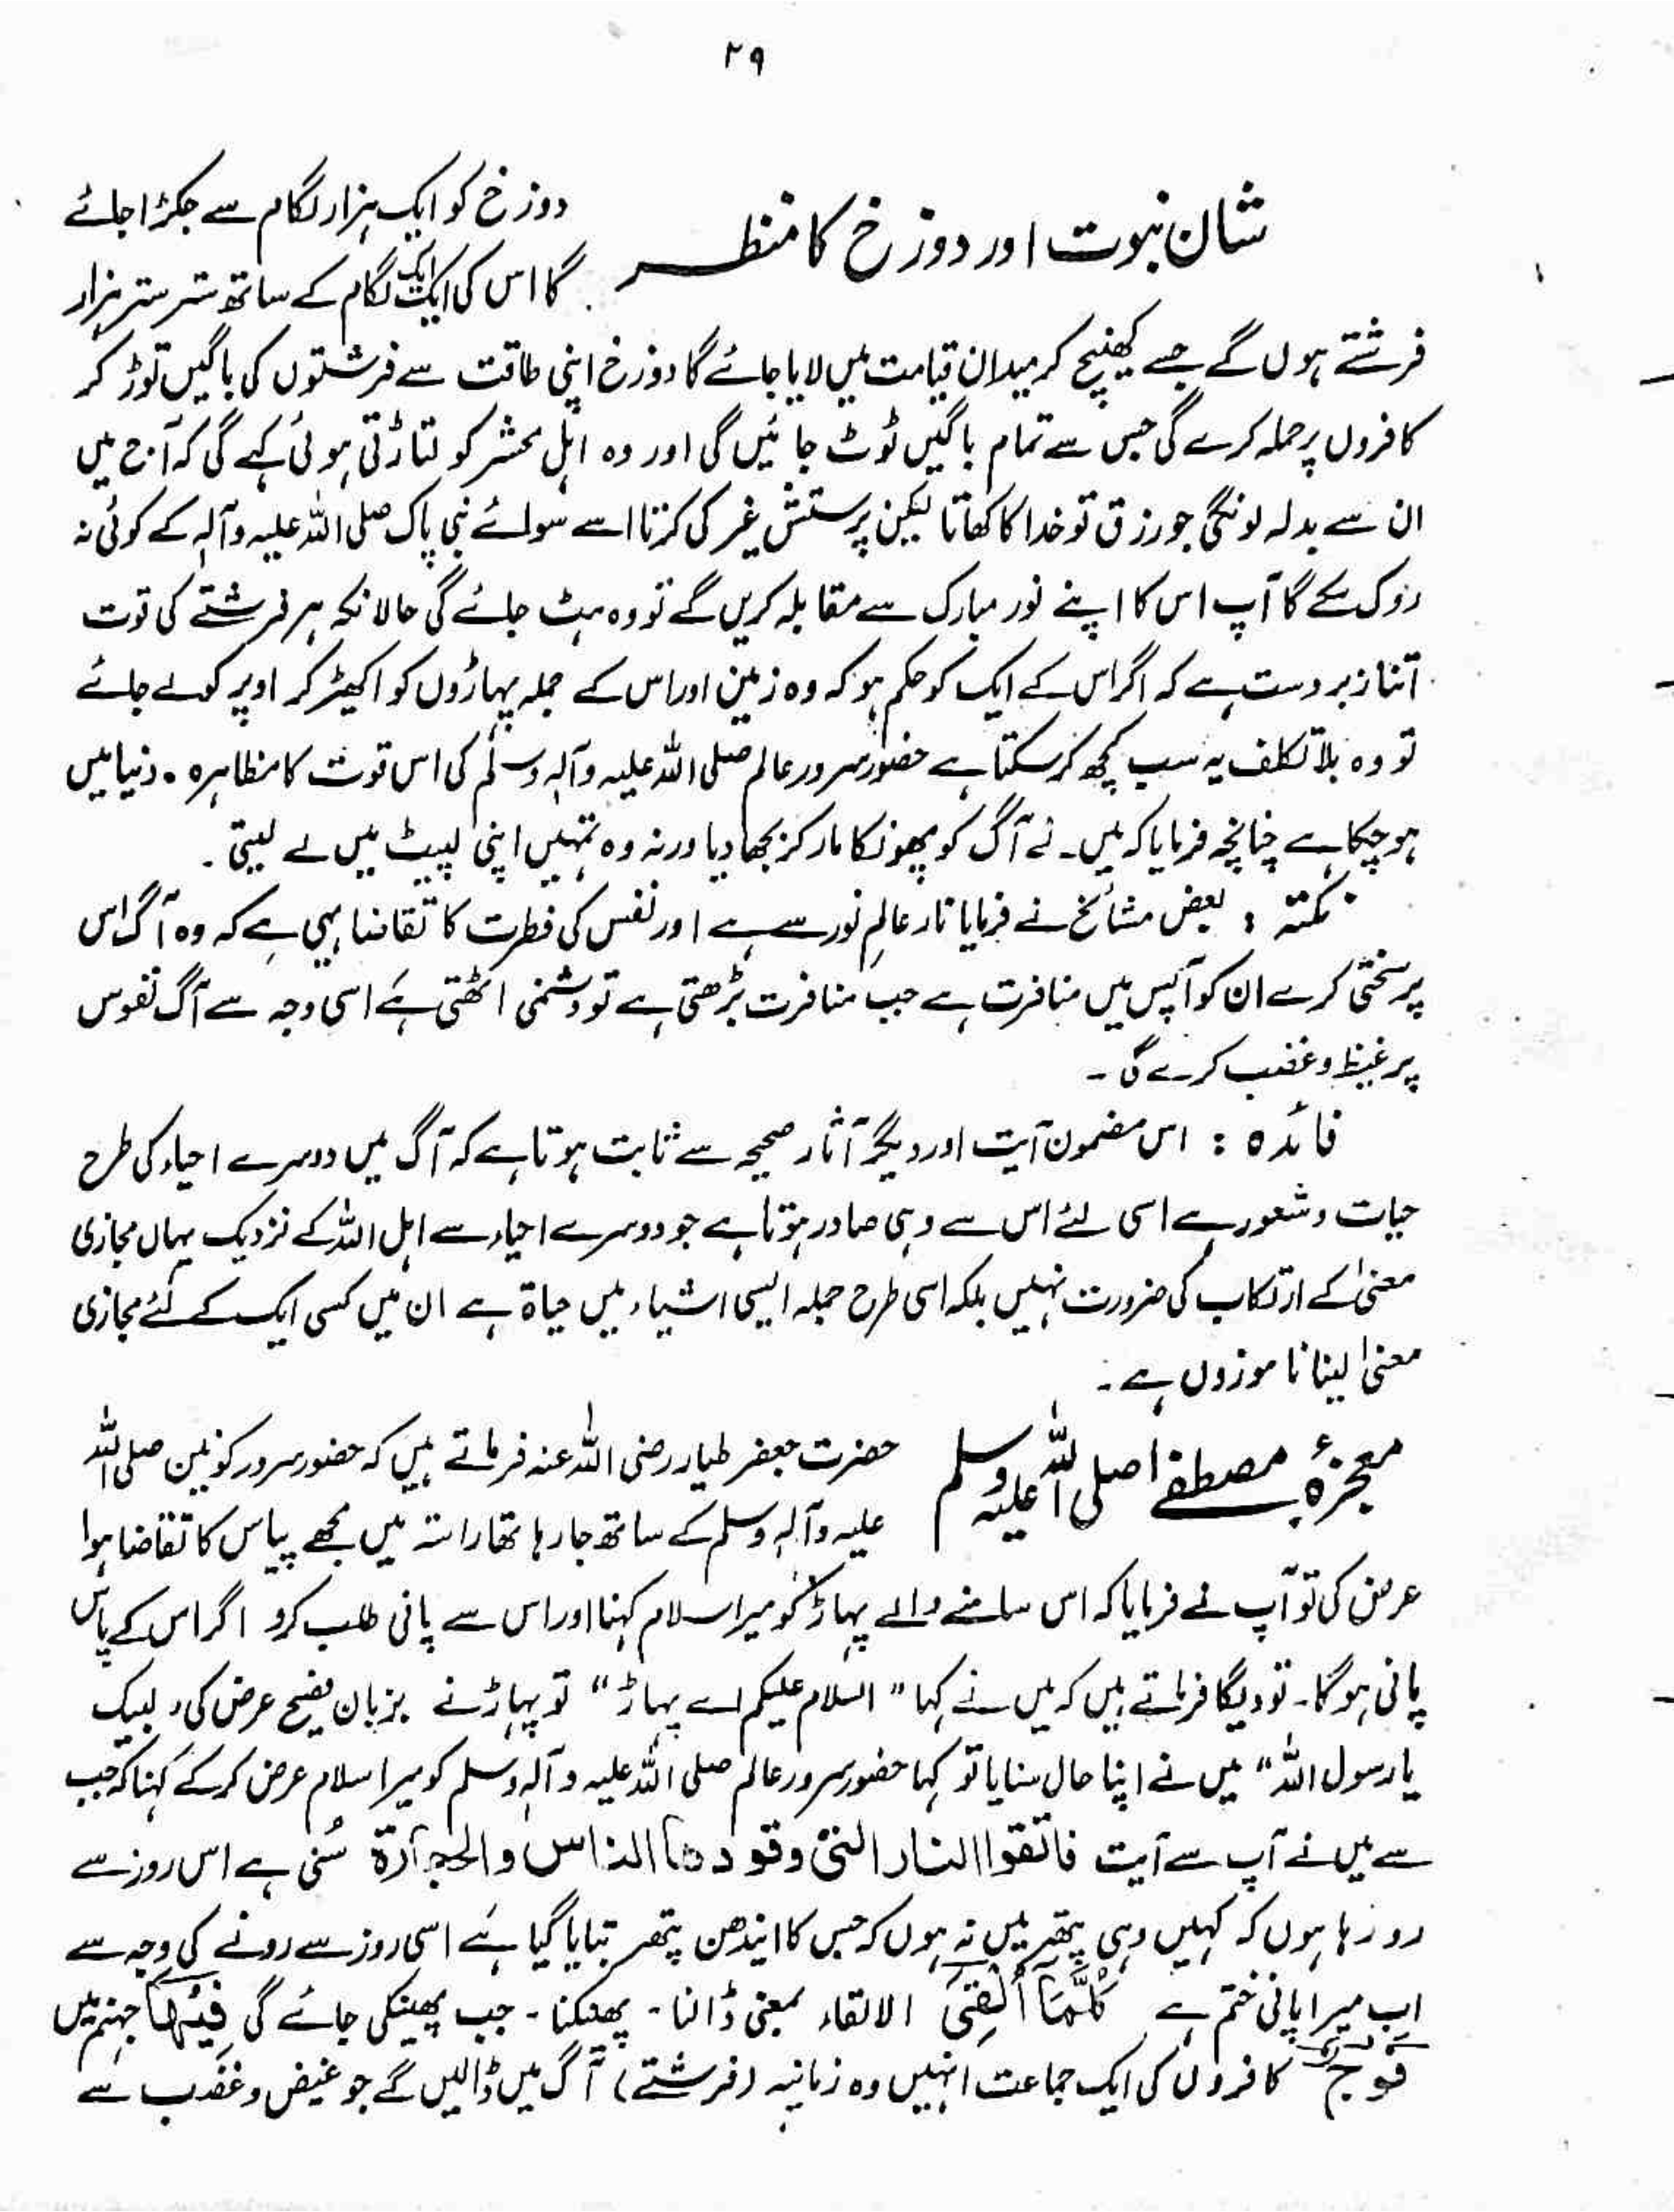 ۲۹
شان نبوت اور دوزخ کا منظر
دوزخ کو ایک ہزار لگام سے جکڑا جائے
گا اس کی ایک ایک لگام کے ساتھ ستر ستر ہزار
فرشتے ہوں گے جسے کھینچ کر میدان قیامت میں لایا جائے گا دوزخ اپنی طاقت سے فرشتوں کی باگیں توڑ کر
کافروں پر حملہ کرے گی جس سے تمام باگیں ٹوٹ جائیں گی اور وہ اہل محشر کو لتاڑتی ہوئی کہے گی کہ آج میں
ان سے بدلہ لونگی جو رزق تو خدا کا کھاتا لیکن پرستش غیر کی کرتا اسے سوائے نبی پاک صلی اللہ علیہ وآلہ کے کوئی نہ
روک سکے گا آپ اس کا اپنے نور مبارک سے مقابلہ کریں گے تو وہ ہٹ جائے گی حالانکہ ہر فرشتے کی قوت
اتنا زبردست ہے کہ اگر اس کے ایک کو حکم ہو کہ وہ زمین اور اس کے جملہ پہاڑوں کو اکھیڑ کر اوپر کو لے جائے
تو وہ بلا تکلف یہ سب کچھ کر سکتا ہے حضور سرور عالم صلی اللہ علیہ وآلہ وسلم کی اس قوت کا مظاہرہ ۔ دنیا میں
ہو چکا ہے چنانچہ فرمایا کہ میں ۔ نے آگ کو پھونکا مار کر بجھا دیا ورنہ وہ تمہیں اپنی لپیٹ میں لے لیتی ۔
نکتہ : بعض مشائخ نے فرمایا نار عالمِ نور سے ہے اور نفس کی فطرت کا تقاضا یہی ہے کہ وہ آگ اس
پر سختی کرے ان کو آپس میں منافرت ہے جب منافرت بڑھتی ہے تو دشمنی اٹھتی ہے اسی وجہ سے آگ نفوس
پر غیظ و غضب کرے گی ۔
فائدہ : اس مضمون آیت اور دیگر آثار صحیحہ سے ثابت ہوتا ہے کہ آگ میں دوسرے احیاء کی طرح
حیات و شعور ہے اسی لئے اس سے وہی صادر ہوتا ہے جو دوسرے احیاء سے اہل اللہ کے نزدیک یہاں مجازی
معنیٰ کے ارتکاب کی ضرورت نہیں بلکہ اسی طرح جملہ ایسی اشیاء میں حیاۃ ہے ان میں کسی ایک کے لئے مجازی
معنیٰ لینا ناموزوں ہے ۔
معجزۂ مصطفےٰ صلی اللہ علیہ وسلم
حضرت جعفر طیار رضی اللہ عنہ فرماتے ہیں کہ حضور سرور کونین صلی اللہ
علیہ وآلہ وسلم کے ساتھ جا رہا تھا راستہ میں مجھے پیاس کا تقاضا ہوا
عرض کی تو آپ نے فرمایا کہ اس سامنے والے پہاڑ کو میرا سلام کہنا اور اس سے پانی طلب کرو اگر اس کے پاس
پانی ہوگا ۔ تو دیگا فرماتے ہیں کہ میں نے کہا " السلام علیکم اے پہاڑ " تو پہاڑ نے بزبان فصیح عرض کی " لبیک
یا رسول اللہ " میں نے اپنا حال سنایا تو کہا حضور سرور عالم صلی اللہ علیہ وآلہ وسلم کو میرا سلام عرض کر کے کہنا کہ جب
سے میں نے آپ سے آیت فاتقوا النار التی وقودھا الناس والحجارۃ سُنی ہے اس روز سے
رو رہا ہوں کہ کہیں وہی پتھر میں نہ ہوں کہ جس کا ایندھن پتھر بتایا گیا ہے اسی روز سے رونے کی وجہ سے
اب میرا پانی ختم ہے كُلَّمَا أُلْقِىَ الالقاء بمعنی ڈالنا ۔ پھینکنا ۔ جب پھینکی جائے گی فِيْهَا جہنم میں
فَوْجٌ کافروں کی ایک جماعت انہیں وہ زبانیہ (فرشتے) آگ میں ڈالیں گے جو غیض و غضب سے